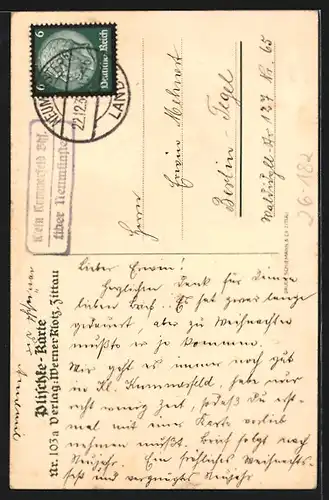 6
Deutsches Reich
22.12.3
LAND
Klein Kummerfeld Bhf.
über Neumünster
Herrn
Erwin Mehnert
Berlin-Tegel
Nr. 65
26-182
Lieber Erwin!
Herzlichen Dank für Deinen
lieben Brief. Es hat zwar lange
gedauert, aber zu Weihnachten
mußte er ja kommen.
Wir geht es immer noch gut
in Kl. Kummerfeld, habe nur
recht wenig Zeit, sodaß Du erst
mal mit einer Karte vorlieb
nehmen mußt. Brief folgt nach
Neujahr. Ein fröhliches Weihnachts-
fest und vergnügtes Neujahr
wünscht Dir
Plischke-Karte
Nr. 103a Verlag: Werner Klotz, Zittau